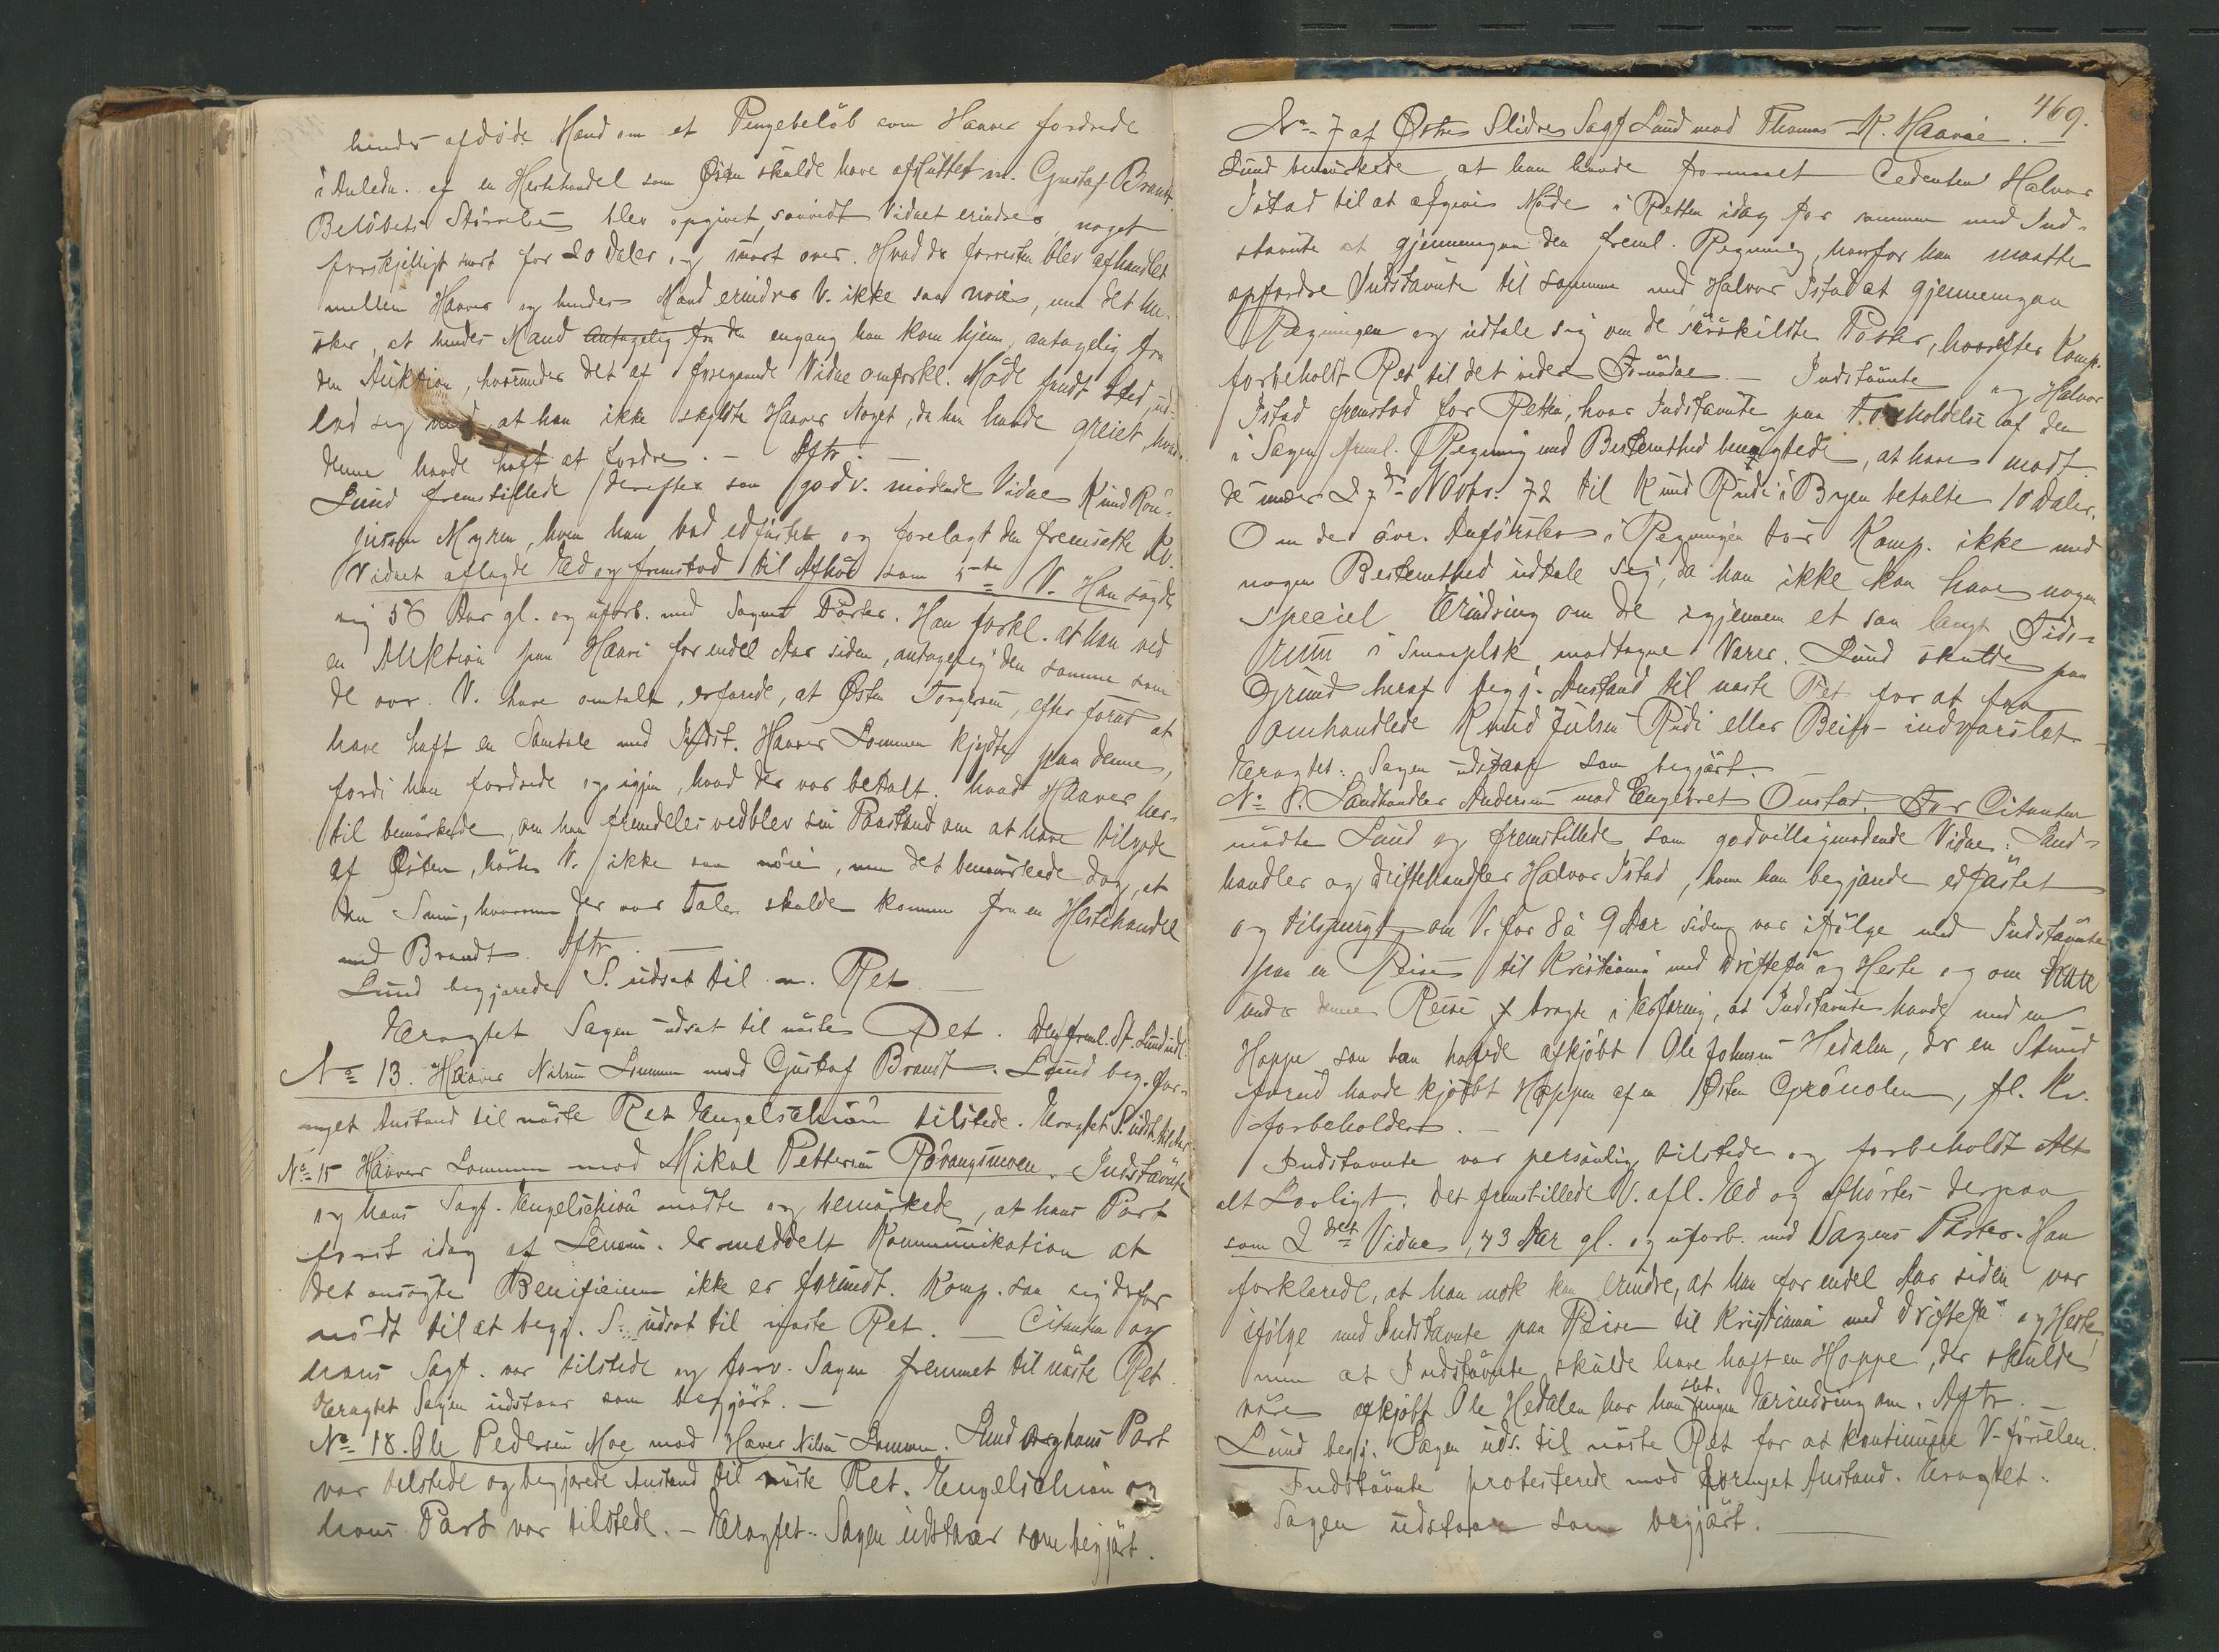 hendes afdöde Mand om et Pengebelöb som Haaver fordrede
i Anledn. af en Hestehandel som Östen skulde have afsluttet m. Gustaf Brandt.
Belöbets Störrelse blev opgivet, saavidt Vidnet erindrer, noget
forskjelligt snart for 20 Daler og snart over. Hvad der forresten blev afhandlet
mellem Haaver og hendes Mand erindrer V. ikke saa nöie, men det hu-
sker, at hendes Mand antagelig fra da engang han kom hjem, antagelig fra
den Auktion, hvorunder det af foregaaende Vidne omforkl. Möde fandt sted ud-
lod sig med, at han ikke skyldte Haaver Noget, da han havde greiet, hvad
denne havde haft at fordre. — Aftr. —
Lund fremstillede derefter som godv. mödende Vidne Knud
Myren, hvem han bad edfæstet og forelagt den fremsatte Kv.
Vidnet aflagde Ed og fremstod til Afhör som 5te V. Han sagde
sig 56 Aar gl. og uforb. med Sagens Parter. Han forkl. at han ved
en Auktion paa Haavi for endel Aar siden, antagelig den samme som
de övr. V. have omtalt, erfarede, at Östen Torgersen, efter forud at
have haft en Samtale med Indst. Haaver Lommen kjydte paa denne,
fordi han fordrede op igjen, hvad der var betalt. Hvad Haaver her-
til bemærkede, om han fremdeles vedblev sin Paastand om at have tilgode
af Östen, hörte V. ikke saa nöie, men det bemærkede dog, at
den Sum, hvorom der var Tale skulde komme fra en Hestehandel
med Brandt. Aftr. —
Lund begjærede S. udsat til n. Ret. —
Eragtet Sagen udsat til næste Ret. Den freml. St. Lund udl.
No 13. Haaver Nilsen Lommen mod Gustaf Brandt. Lund beg. for-
nyet Anstand til næste Ret Engelschiön tilstede. Eragtet S. udst.
No 15 Haaver Lommen mod Mikal Pettersen Rövangsmoen. Indstævnte
og hans Sagf. Engelschiön mödte og bemærkede, at hans Part
först idag af Lensm. er meddelt Kommunikation at
det ansögte Benificium ikke er forundt. Komp. saa sig derfor
nödt til at begj. S. udsat til næste Ret. — Citanten og
hans Sagf. var tilstede og forv. Sagen fremmet til næste Ret.
Eragtet Sagen udstaar som begjært. —
No 18. Ole Pedersen Moe mod Haaver Nilsen Lommen. Lund og hans Part
var tilstede og begjærede Anstand til næste Ret. Engelschiön og
hans Part var tilstede. — Eragtet: Sagen udstaar som begjært.
469.
No 7 af Östre Slidre Sagf Lund mod Thomas K. Haavie. —
Lund bemærkede at han havde formaaet Cedenten Halvor
Istad til at afgive Möde i Retten idag for sammen med Ind-
stævnte at gjennemgaa den freml. Regning, hvorfor han maatte
opfordre Indstævnte til sammen med Halvor Istad at gjennemgaa
Regningen og udtale sig om de særskildte Poster, hvorefter Komp.
forbeholdt Ret til det videre Fornödne. — Indstævnte og Halvor
Istad fremstod for Retten, hvor Indstævnte paa Foreholdelse af den
i Sagen freml. Regning med Bestemthed benægtede, at have modt.
de under 27de Novbr. 72 til Knud Rudi i Byen betalte 10 Daler.
Om de övr. Anförsler i Regningen tör Komp. ikke med
nogen Bestemthed udtale sig, da han ikke kan have nogen
speciel Erindring om de igjennem et saa langt Tids-
rum i Smaaplok modtagne Varer. Lund skulde paa
Grund heraf begj. Anstand til næste Ret for at faa
omhandlede Knud Julsen Rudi eller Beito indvarslet.
Eragtet: Sagen udstaar som begjært. —
No 8. Landhandler Andersen mod Engebret Onstad. For Citanten
mödte Lund og fremstillede som godvilligmödende Vidne: Land-
handler og Driftehandler Halvor Istad, hvem han begjærede edfæstet
og tilspurgt, om V. for 8 à 9 Aar siden var ifölge med Indstævnte
paa en Reise til Kristiania med Driftefæ og Heste og om dette
under denne Reise bragte i Erfaring, at Indstævnte havde med en
Hoppe som han havde afkjöbt Ole Johnsen Hedalen, der en Stund
forud havde kjöbt Hoppen af en Östen Grönolen, fl. Kv.
forbeholdes. —
Indstævnte var personlig tilstede og forbeholdt Alt
alt Lovligt. Det fremstillede V. afl. Ed og afhörtes derpaa
som 2det Vidne, 43 Aar gl. og uforb. med Sagens Parter. Han
forklarede, at han nok kan erindre, at han for endel Aar siden var
ifölge med Indstævnte paa Reise til Kristiania med Driftefæ og Heste,
men at Indstævnte skulde have haft en Hoppe, der skulde
være afkjöbt Ole Hedalen har han slet ingen Erindring om. Aftr. —
Lund begj. Sagen uds. til næste Ret for at kontinuere V-förselen.
Indstævnte protesterede mod fornyet Anstand. Eragtet:
Sagen udstaar som begjært. —